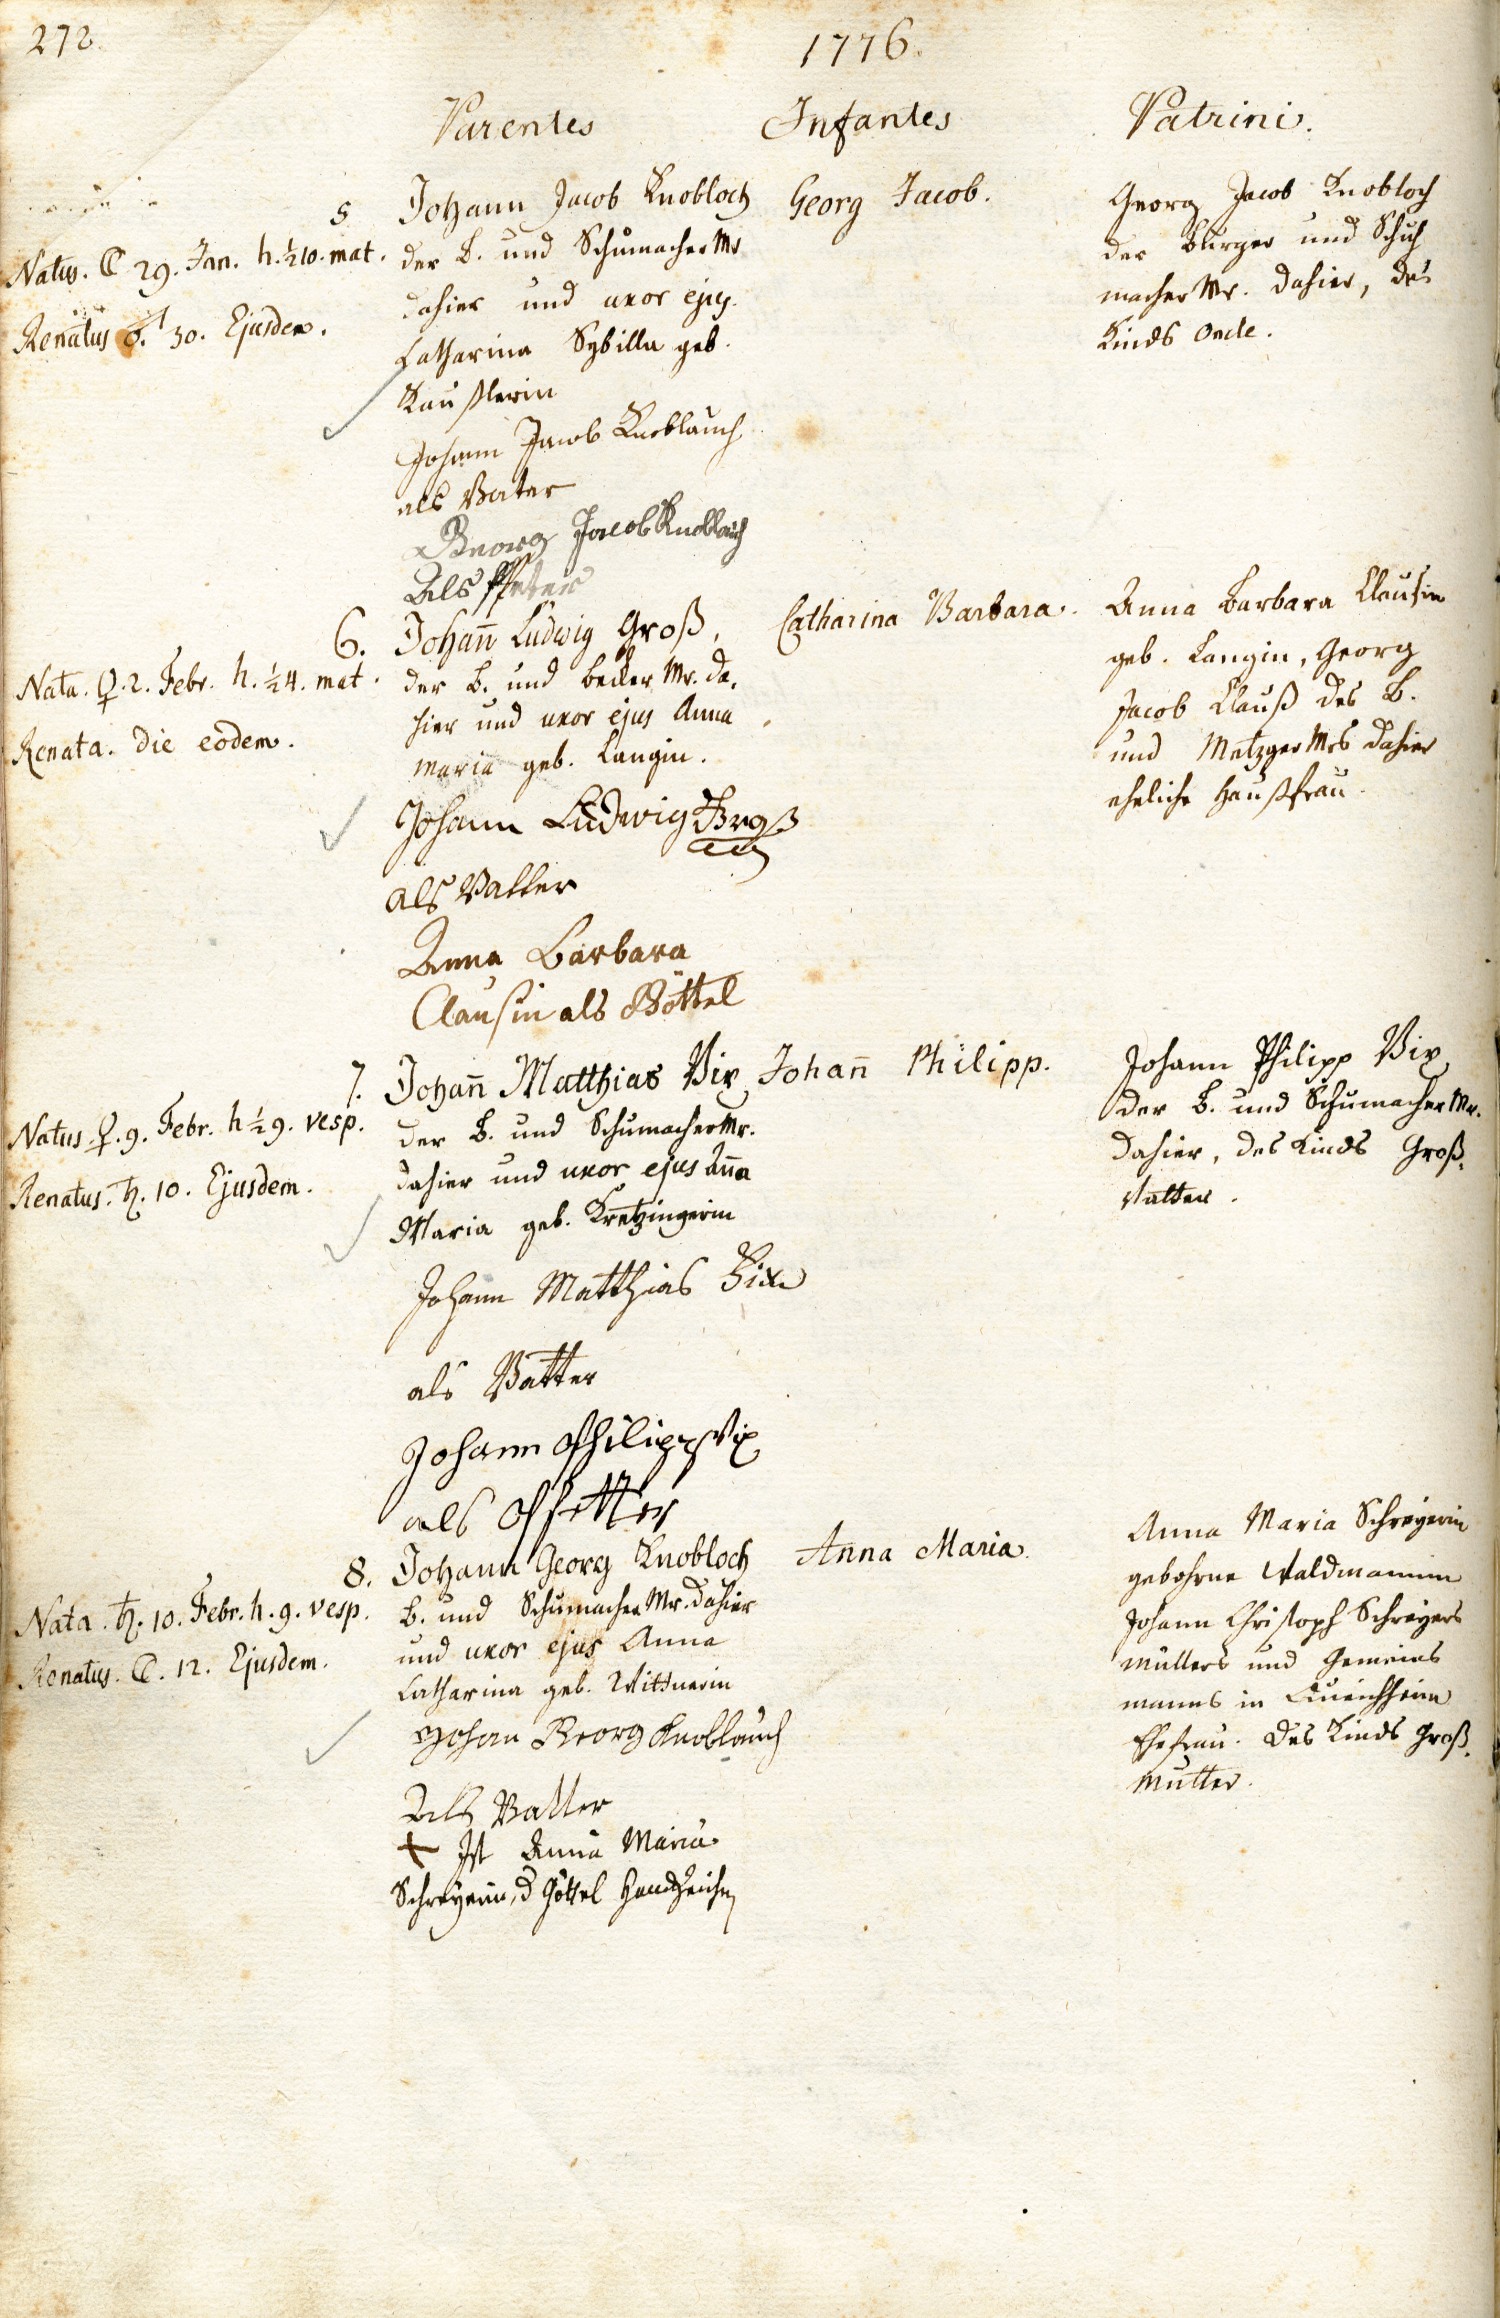 272.
1776.
Parentes Infantes Patrini.
5 Johann Jacob Knobloch
der B. und Schumacher Mr
dahier und uxor ejus.
Catharina Sybilla geb.
Kaußlerin
Natus. ☾ 29. Jan. h. ½10. mat.
Renatus ♂. 30. Ejusdem.
Georg Jacob.
Georg Jacob Knobloch
der Burger und Schuh
macher Mr. dahier, des
Kinds Oncle.
Johann Jacob Knoblauch
als Vater
Georg Jacob Knoblauch
Als Pfeter
6. Johan̅ Ludwig Groß,
der B. und Becker Mr. da,
hier und uxor ejus Anna
Maria geb. Langin.
Nata. ♀. 2. Febr. h. ½4. mat.
Renata. die eodem.
Catharina Barbara.
Anna Barbara Clausin
geb. Langin, Georg
Jacob Clauß des B.
und Metzger Mrs dahier
eheliche Haußfrau.
Johann Ludwig Groß
als Vatter
Anna Barbara
Clausin als Göttel
7. Johan̅ Matthias Vix
der B. und Schumacher Mr.
dahier und uxor ejus An̅a
Maria geb. Kretzingerin
Natus. ♀. 9. Febr. h ½ 9. vesp.
Renatus. ♄. 10. Ejusdem.
Johan̅ Philipp.
Johann Philipp Vix
der B. und Schumacher Mr.
dahier, des Kinds Groß,
Vatter.
Johann Matthias Vix
als Vatter
Johann Philipp Vix
als Pfetter
8. Johann Georg Knobloch
B. und Schumacher Mr. dahier
und uxor ejus Anna
Catharina geb. Wittnerin
Nata. ♄. 10. Febr. h. 9. vesp.
Renatus. ☾. 12. Ejusdem.
Anna Maria.
Anna Maria Schreyerin
gebohrne Waldmannin
Johann Christoph Schreyers
Müllers und Gemeins
manns in Queichheim
Ehefrau. des Kinds Groß,
Mutter.
Johan Georg Knoblauch
Als Vatter
+ Ist Anna Maria
Schreyerin, d Göttel Handzeichen